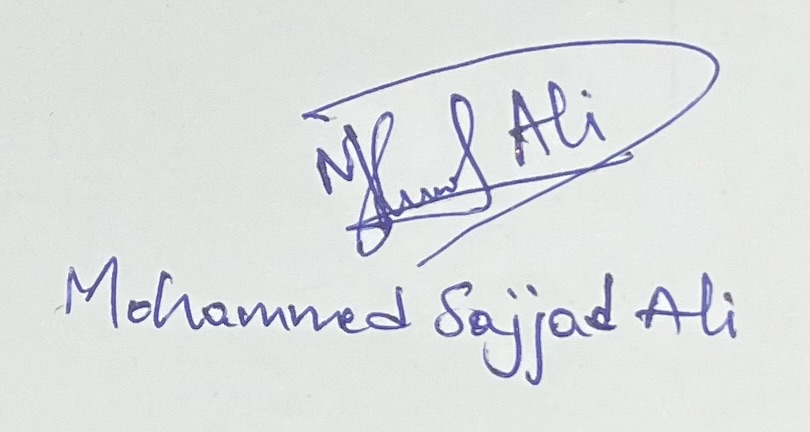 Ali
Mohammed Sajjad Ali